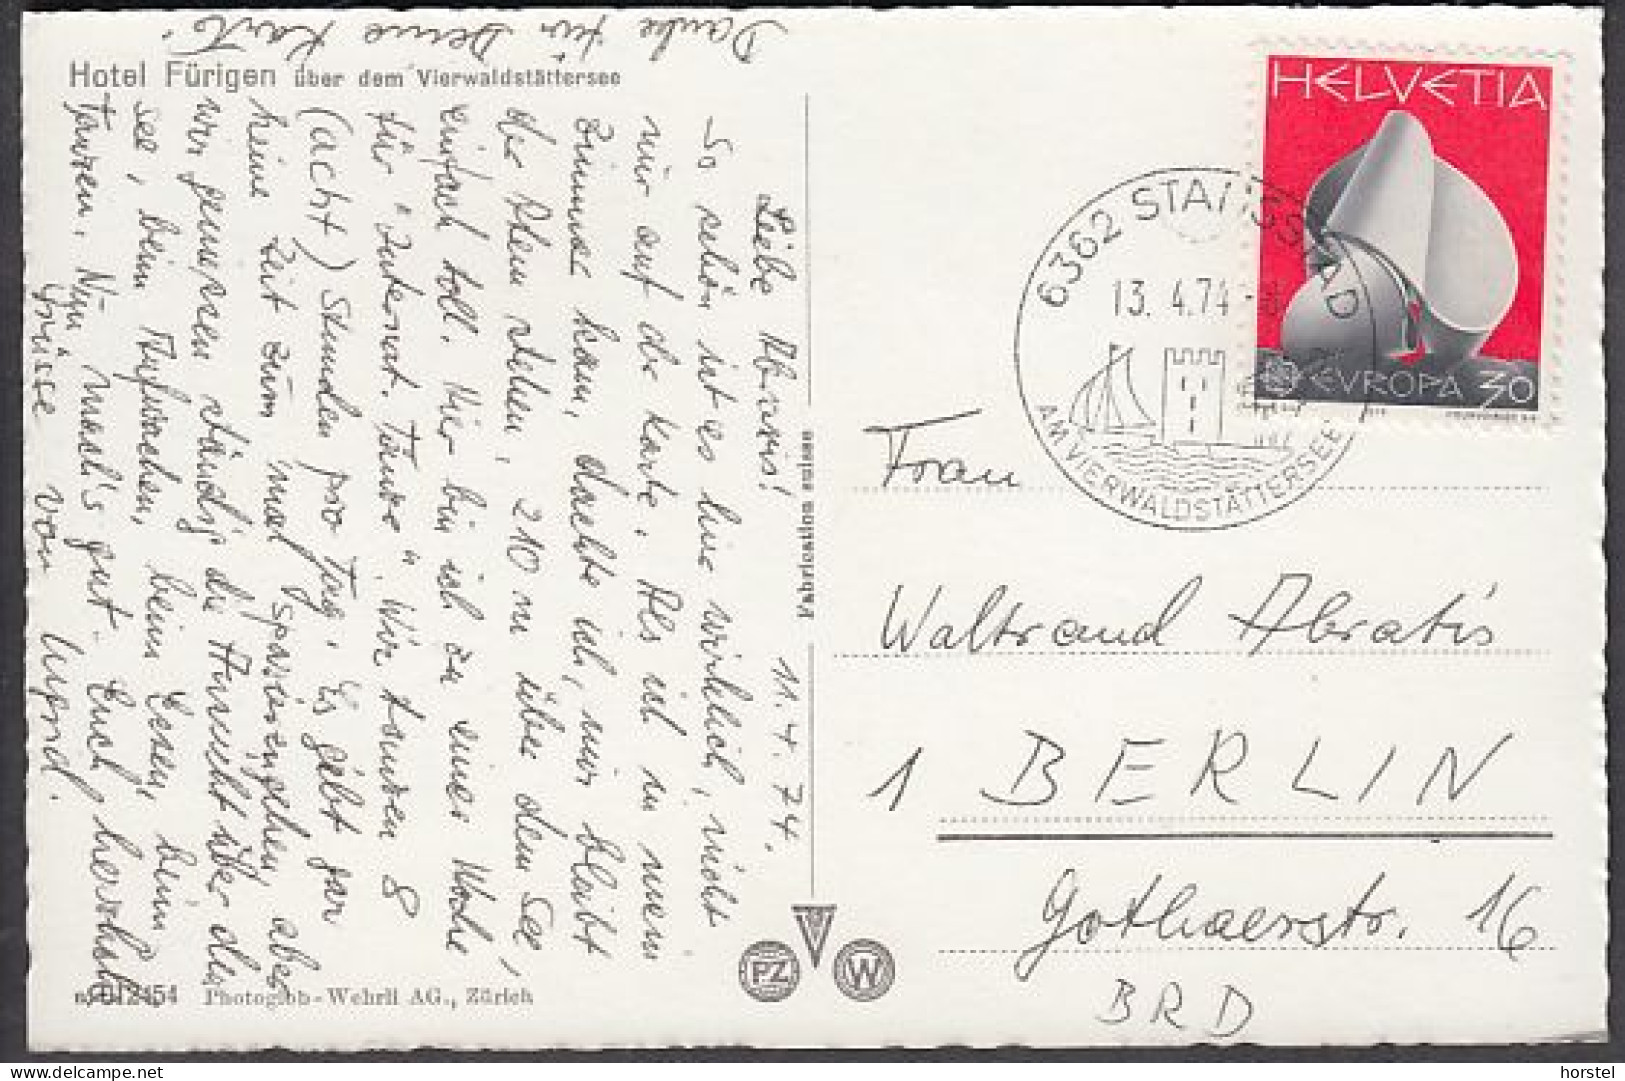 Hotel Fürigen über dem Vierwaldstättersee
Danke für Deine Karte!
11.4.74.
Liebe Abratis!
So schön ist es hier wirklich, nicht
nur auf der Karte. Als ich in mein
Zimmer kam, dachte ich, mir bleibt
der Atem stehen, 210 m über dem See,
einfach toll. Hier bin ich zu einer Woche
für "Internat. Tänze". Wir tanzen 8
(acht) Stunden pro Tag. Es gibt gar
keine Zeit zum mal spazierengehen, aber
wir geniessen ständig die Aussicht über den
See, beim Aufwachen, beim Essen, beim
Tanzen. Nun, mach's gut. Euch herzlich
Grüsse von
Fabrication suisse
PZ
W
Photoglob-Wehrli AG., Zürich
HELVETIA
EVROPA 30
6362 STANSSTAD
13.4.74
AM VIERWALDSTÄTTERSEE
Frau
Waltraud Abratis
1 BERLIN
Gothaerstr. 16
BRD
horstel